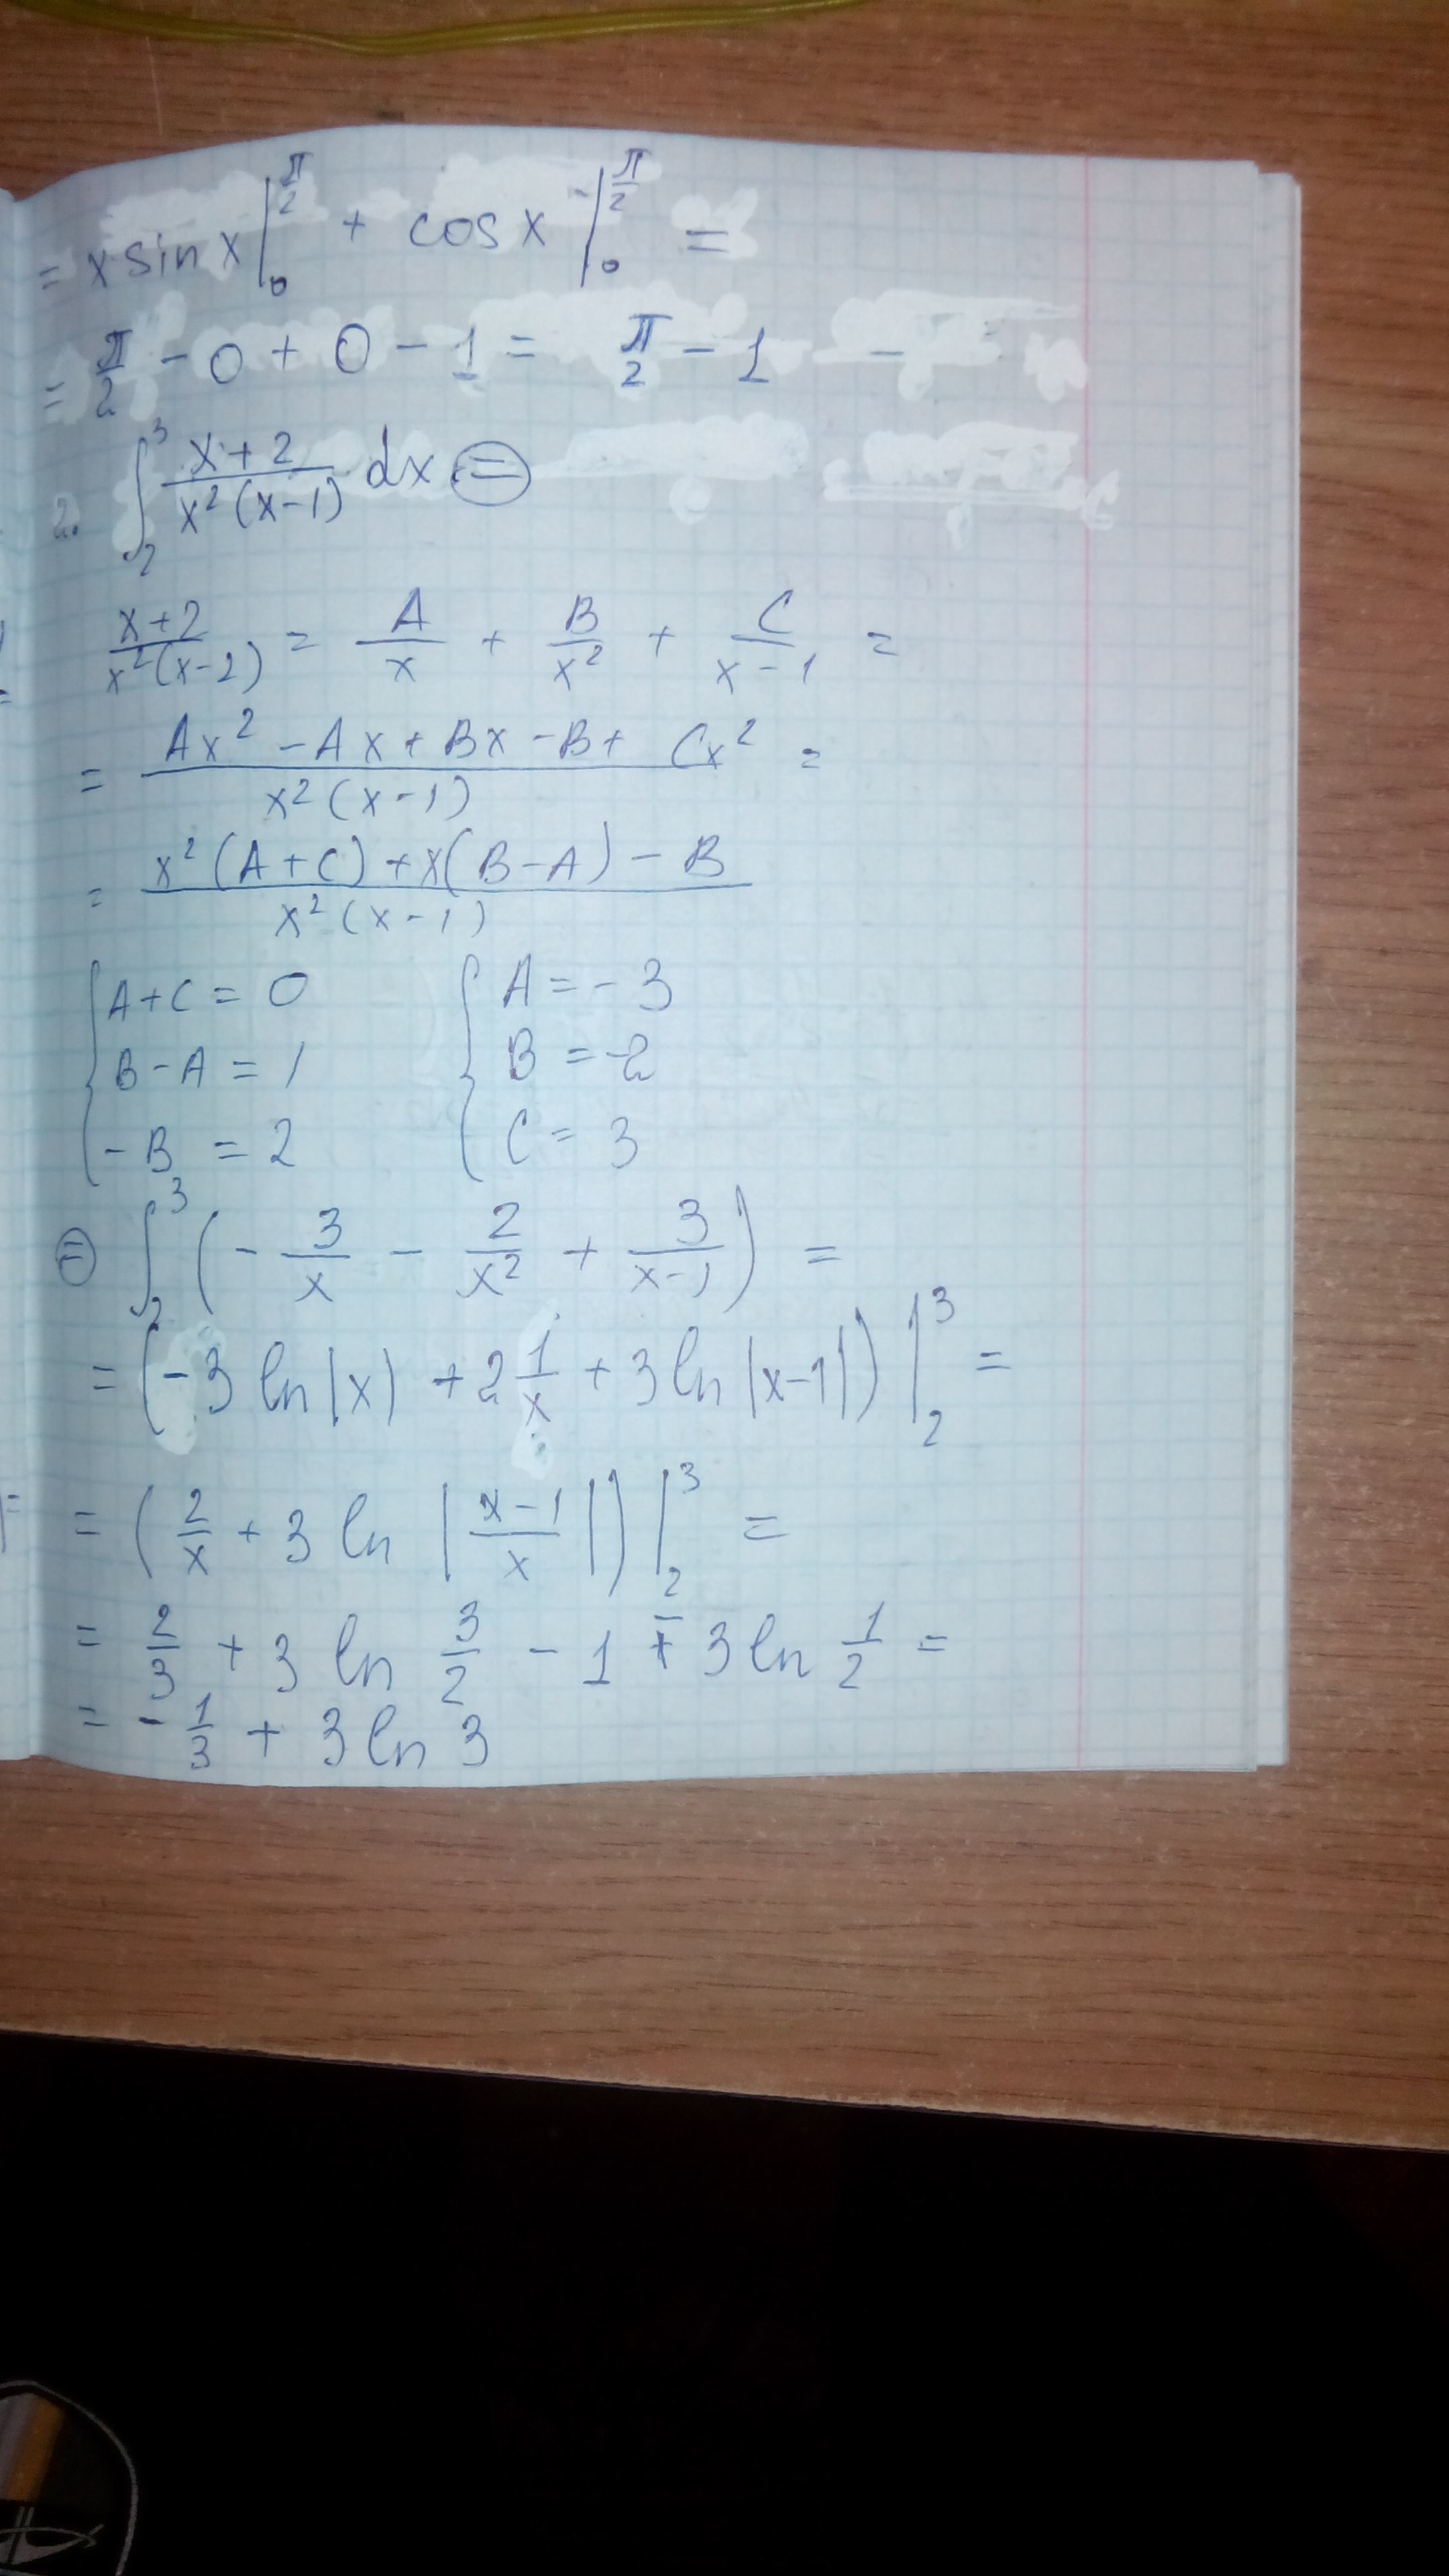 = x sin x |₀^(π/2) + cos x |₀^(π/2) =
= π/2 - 0 + 0 - 1 = π/2 - 1
2. ∫₂³ (x+2)/(x²(x-1)) dx ⊜
(x+2)/(x²(x-2)) = A/x + B/x² + C/(x-1) =
= (Ax² - Ax + Bx - B + Cx²)/(x²(x-1)) =
= (x²(A+C) + x(B-A) - B)/(x²(x-1))
{ A+C = 0 { A = -3
B-A = 1 B = -2
-B = 2 C = 3
⊜ ∫₂³ (-3/x - 2/x² + 3/(x-1)) =
= (-3 ln|x) + 2 1/x + 3 ln|x-1|) |₂³ =
= (2/x + 3 ln |(x-1)/x|) |₂³ =
= 2/3 + 3 ln 3/2 - 1 - 3 ln 1/2 =
= -1/3 + 3 ln 3